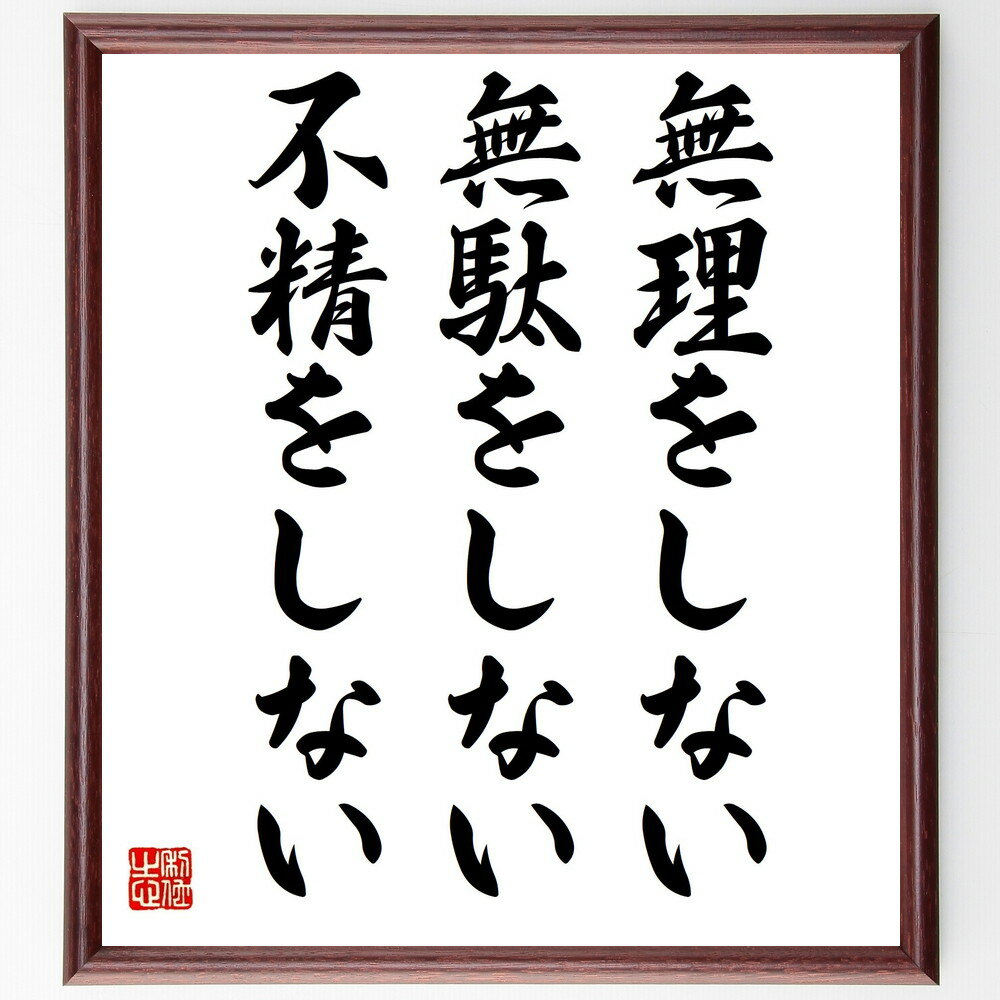 無理をしない
無駄をしない
不精をしない